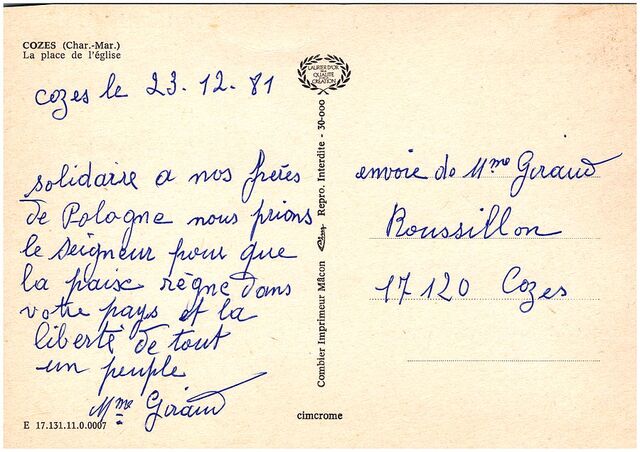 COZES (Char.-Mar.)
La place de l'église
Cozes le 23.12.81
solidaire a nos frères
de Pologne nous prions
le seigneur pour que
la paix règne dans
votre pays et la
liberté de tout
un peuple
Mme Giraud
E 17.131.11.0.0007
LAURIER D'OR
DE LA
QUALITÉ
CRÉATION
Combier Imprimeur Mâcon Cim Repro. Interdite - 30-000
cimcrome
envoie de Mme Giraud
Roussillon
17120 Cozes